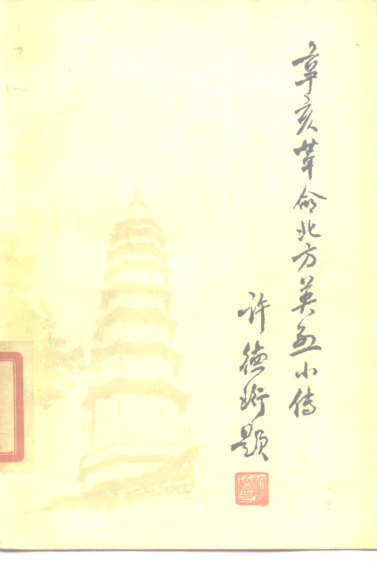 辛亥革命北方英烈小传
许德珩题